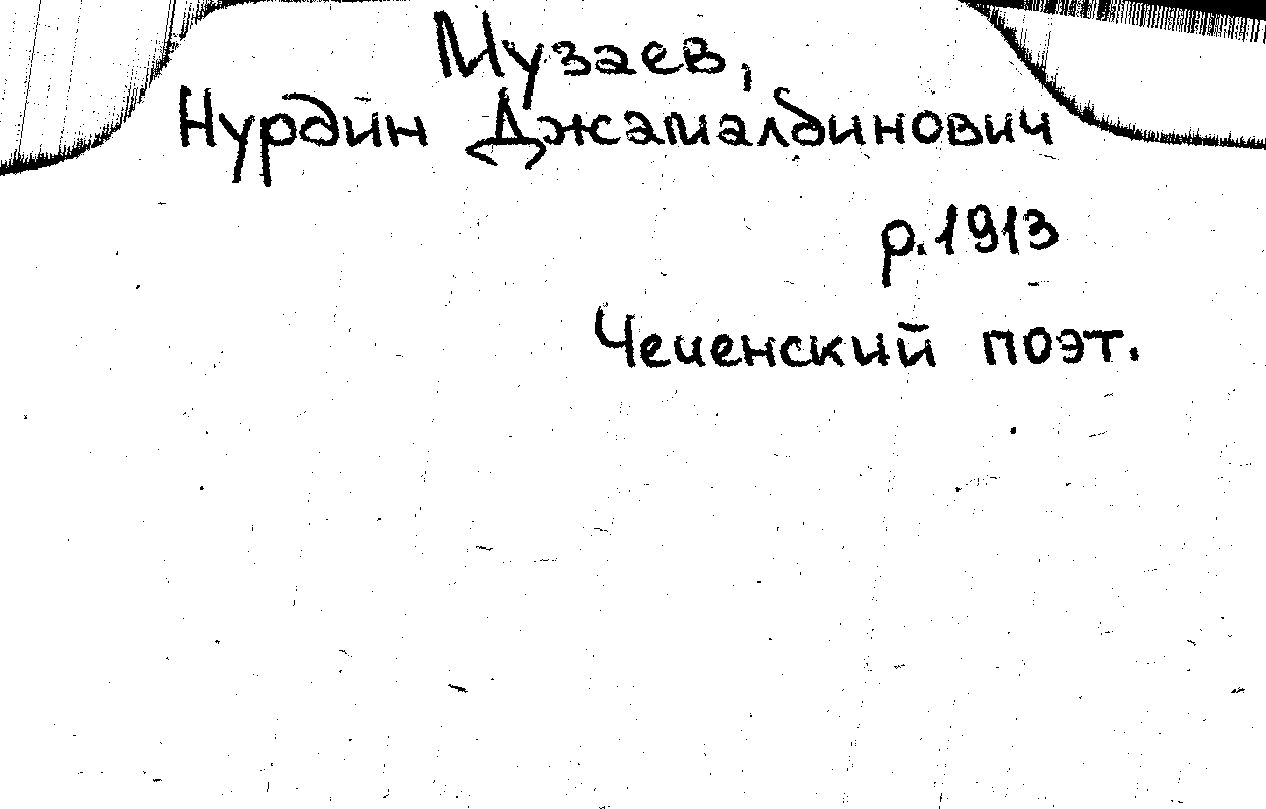 Музаев,
Нурдин Джамалдинович
р. 1913
Чеченский поэт.